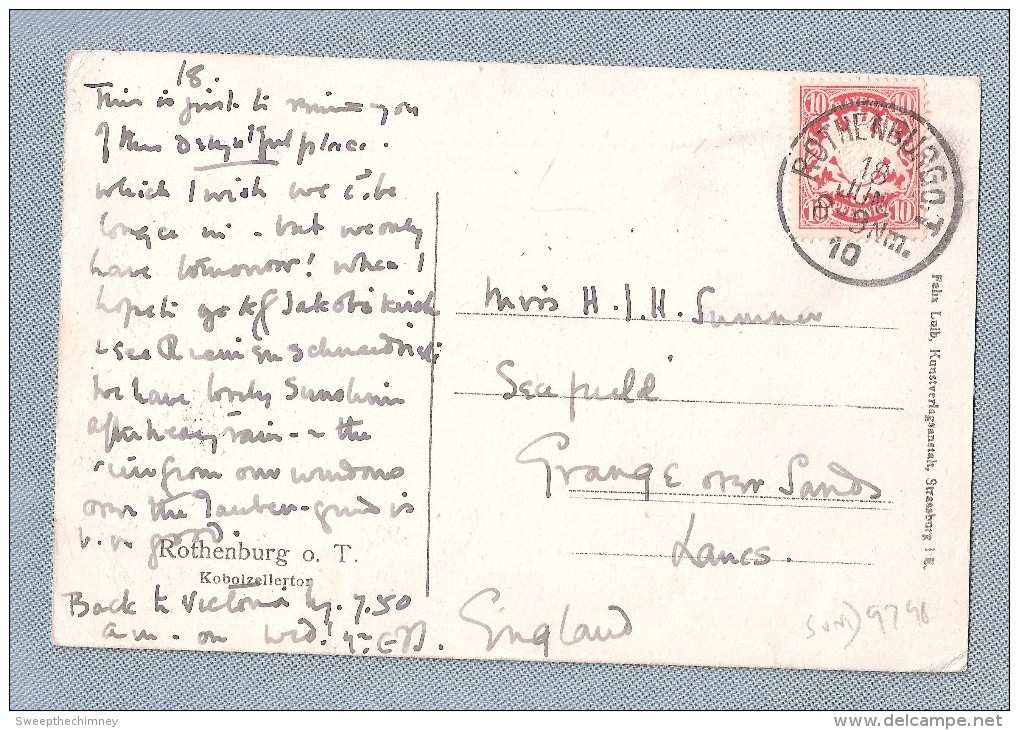 18.
This is just to remind you
of this delightful place.
which I wish we cd. be
longer in - but we only
have tomorrow! when I
hope to go to Jakobskirch
& see Riemenschneider's
We have lovely Sunshine
after heavy rain - & the
view from our windows
over the Tauber-grund is
v. v. good.
Rothenburg o. T.
Kobolzellertor
Back to Victoria by 7.50
a.m. on Wed.
10 BAYERN 10
10 PFENNIG 10
ROTHENBURG O.T.
18
JUN
8-9 Nm.
10
H. J. H. Sumner
Seafield
Grange over Sands
Lancs.
England
Felix Luib, Kunstverlagsanstalt, Strassburg i. E.
9796
Sweepthechimney
delcampe.net